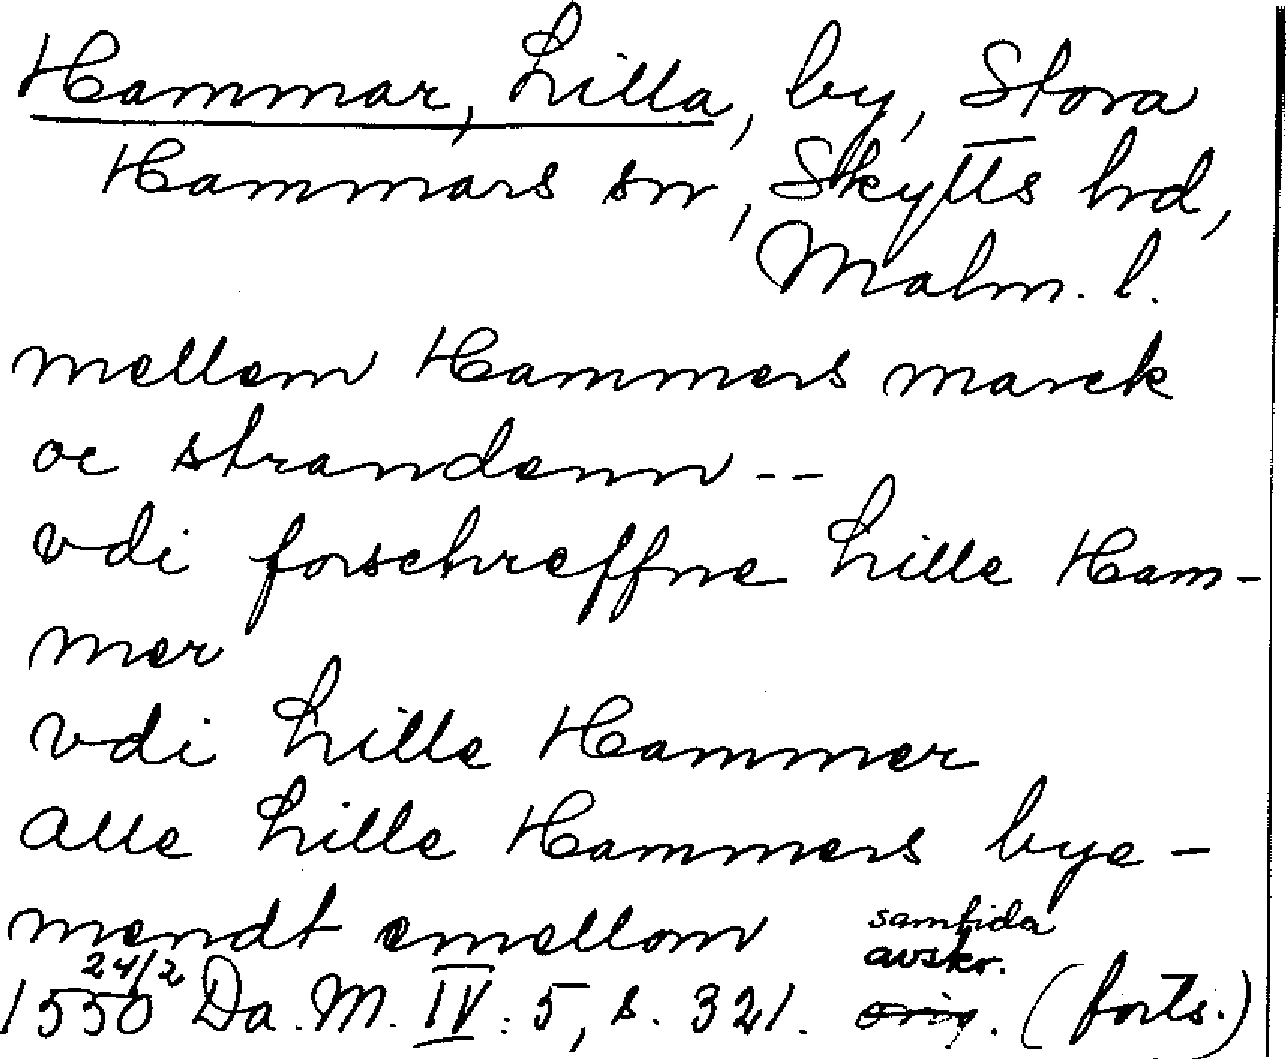 Hammar, Lilla, by, Stora
Hammars sn, Skytts hrd,
Malm. l.
mellem Hammers marck
oc strandenn --
vdi forschreffne Lille Ham-
mer
vdi Lille Hammer
Alle Lille Hammers bye-
mendt emellom samtida
avskr.
24/2
1550 Da. M. IV: 5, s. 321. orig. (forts.)